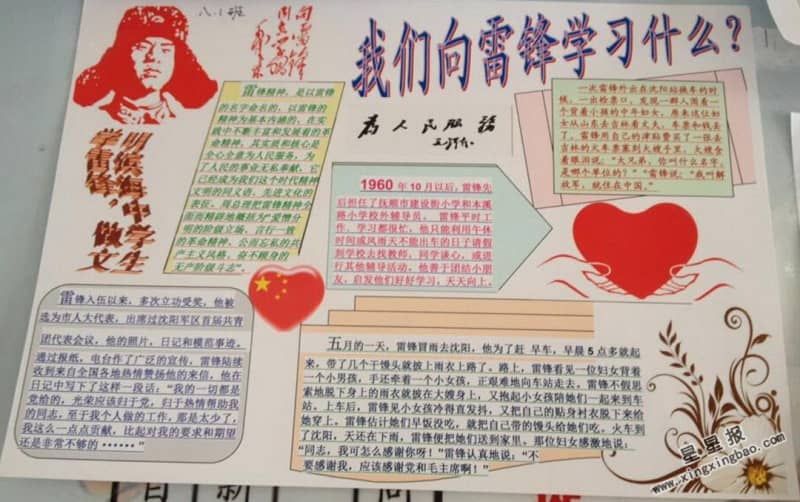 八.1班
向雷锋
同志学习
毛泽东
我们向雷锋学习什么？
学雷锋，做文
明候海中学生
雷锋精神，是以雷锋
的名字命名的，以雷锋的
精神为基本内涵的、在实
践中不断丰富和发展着的革
命精神，其实质和核心是
全心全意为人民服务，为
了人民的事业无私奉献，它
已经成为我们这个时代精神
文明的同义语、先进文化的
表征。周总理把雷锋精神全
面而精辟地概括为“爱憎分
明的阶级立场、言行一致
的革命精神、公而忘私的共
产主义风格、奋不顾身的
无产阶级斗志”。
为人民服务
毛泽东
一次雷锋外出在沈阳站换车的时
候，一出检票口，发现一群人围着一
个背着小孩的中年妇女，原来这位妇
女从山东去吉林看丈夫，车票和钱丢
了。雷锋用自己的津贴费买了一张去
吉林的火车票塞到大嫂手里，大嫂含
着眼泪说：“大兄弟，你叫什么名字，
是哪个单位的？”“雷锋说：“我叫解
放军，就住在中国。”
1960 年 10 月以后，雷锋先
后担任了抚顺市建设街小学和本溪
路小学校外辅导员。 雷锋平时工
作、学习都很忙，他只能利用午休
时间或风雨天不能出车的日子请假
到学校去找教师，同学谈心，或进
行其他辅导活动，他善于团结小朋
友，启发他们好好学习，天天向上。
雷锋入伍以来，多次立功受奖，他被
选为市人大代表，出席过沈阳军区首届共青
团代表会议，他的照片，日记和模范事迹，
通过报纸，电台作了广泛的宣传，雷锋陆续
收到来自全国各地热情赞扬他的来信，他在
日记中写下了这样一段话：“我的一切都是
党给的，光荣应该归于党，归于热情帮助我
的同志，至于我个人做的工作，那是太少了，
我这么一点点贡献，比起对我的要求和期望
还是非常不够的······”
五月的一天，雷锋冒雨去沈阳，他为了赶 早车，早晨 5 点多就起
来，带了几个干馒头就披上雨衣上路了。路上，雷锋看见一位妇女背着
一个小男孩，手还牵着一个小女孩，正艰难地向车站走去，雷锋不假思
索地脱下身上的雨衣就披在大嫂身上，又抱起小女孩陪她们一起来到车
站。上车后，雷锋见小女孩冷得直发抖，又把自己的贴身衬衣脱下来给
她穿上，雷锋估计她们早饭没吃，就把自己带的馒头给她们吃，火车到
了沈阳，天还在下雨，雷锋便把她们送到家里，那位妇女感激地说：
“同志，我可怎么感谢你呀！”雷锋认真地说：“不
要感谢我，应该感谢党和毛主席啊！”
星星报
xingxingbao.com